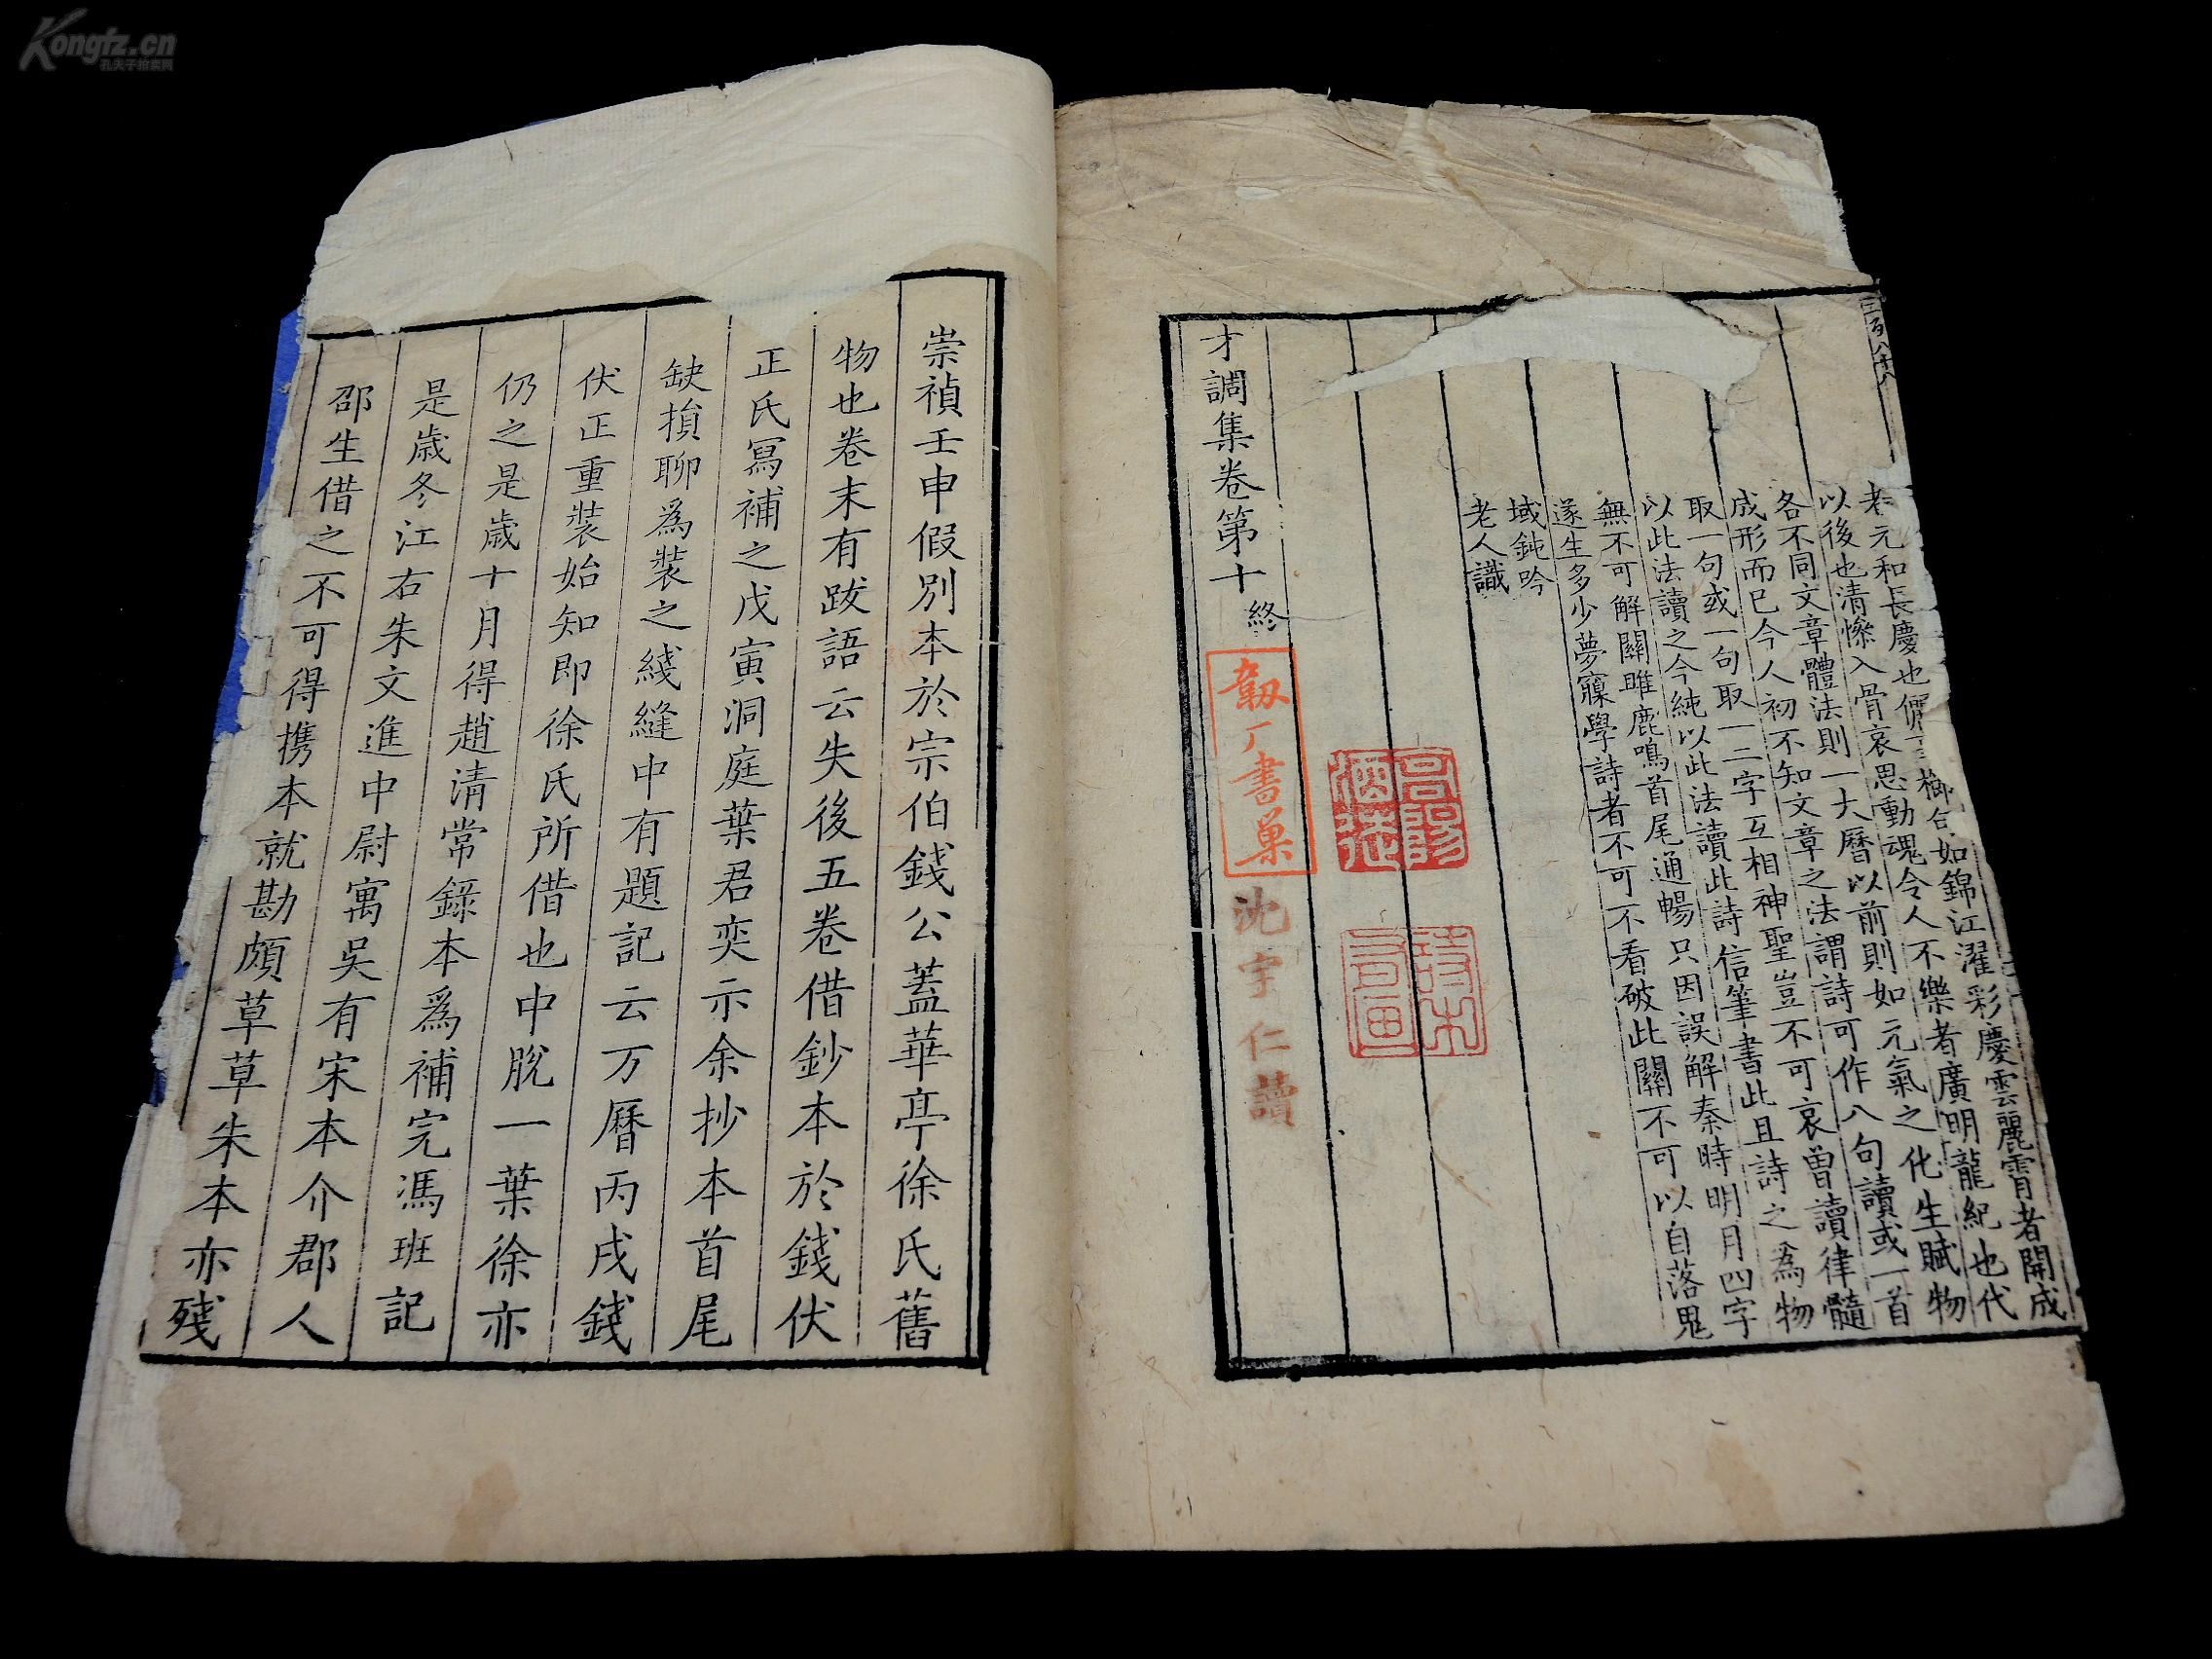 Kongfz.cn
孔夫子拍卖网
老元和長慶也
如錦江濯彩慶雲麗霄者開成
以後也清慘入骨哀思動魂令人不樂者廣明龍紀也代
各不同文章體法則一大曆以前則如元氣之化生賦物
成形而已今人初不知文章之法謂詩可作八句讀或一首
取一句或一句取一二字互相神聖豈不可哀曾讀律髓
以此法讀之今純以此法讀此詩信筆書此且詩之為物
無不可解關雎鹿鳴首尾通暢只因誤解秦時明月四字
遂生多少夢寱學詩者不可不看破此關不可以自落鬼
域鈍吟
老人識
才調集卷第十終
韌厂書巢
沈宇仁讀
崇禎壬申假別本於宗伯錢公蓋華亭徐氏舊
物也卷末有跋語云失後五卷借鈔本於錢伏
正氏寫補之戊寅洞庭葉君奕示余抄本首尾
缺損聊為裝之綫縫中有題記云万曆丙戌錢
伏正重裝始知即徐氏所借也中脫一葉徐亦
仍之是歲十月得趙清常錄本為補完馮班記
是歲冬江右朱文進中尉寓吳有宋本介郡人
邵生借之不可得携本就勘頗草草朱本亦殘